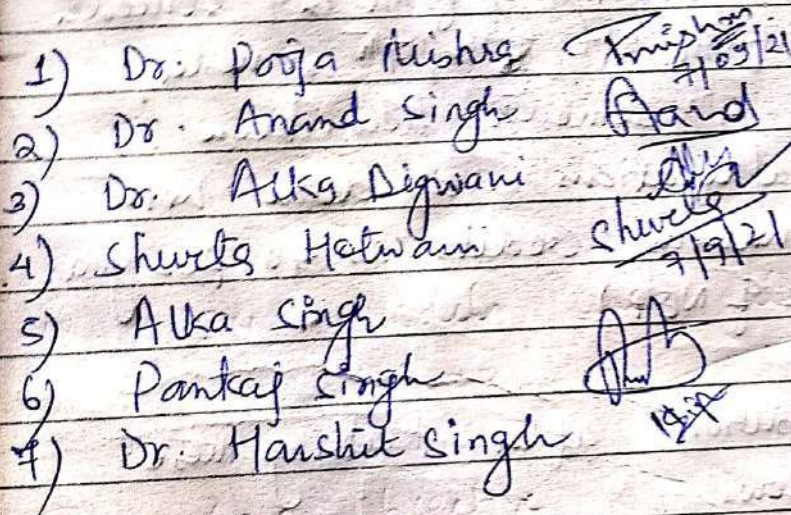 1) Dr. Pooja Mishra 7/09/21
2) Dr. Anand Singh Anand
3) Dr. Alka Digwani
4) Shweta Hotwani Shweta 7/9/21
5) Alka Singh
6) Pankaj Singh
7) Dr. Harshit Singh